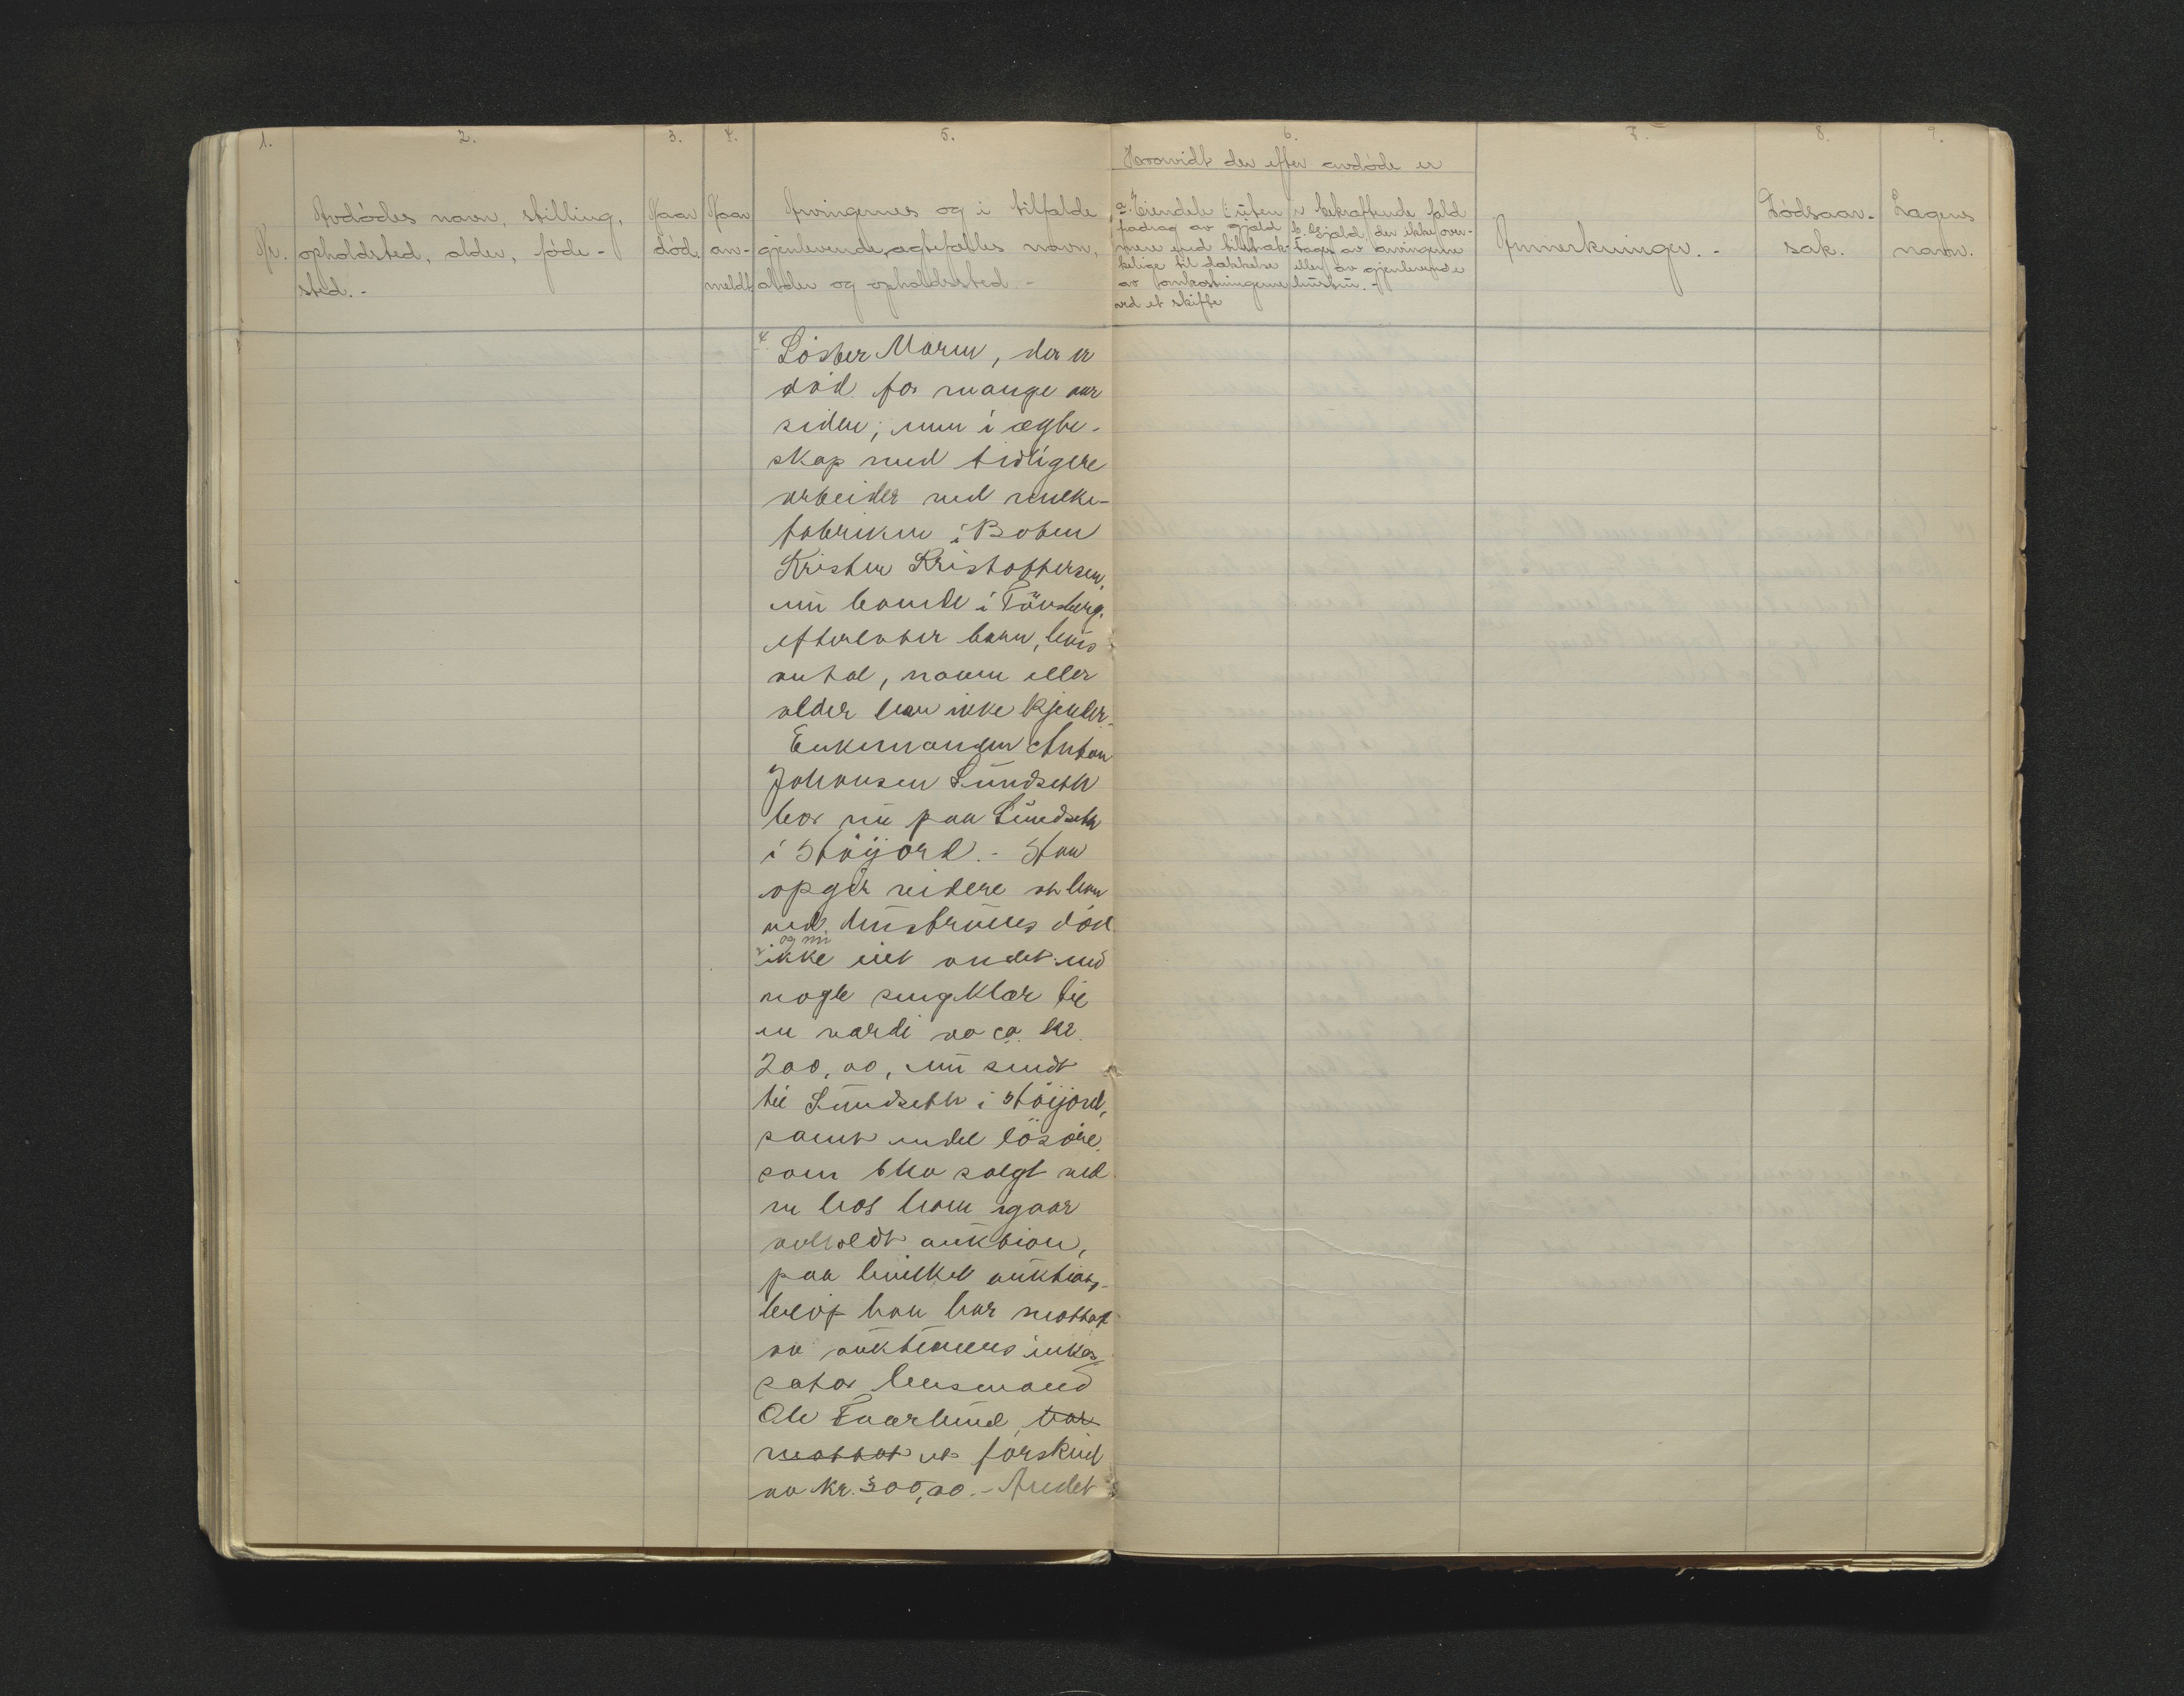 1.
2.
3.
4.
5.
6.
7.
8.
9.
Nr.
Avdödes navn, stilling,
opholdsted, alder, föde-
sted.-
Naar
död.
Naar
an-
meldt
Arvingernes og i tilfælde
gjenlevende ægtefælles navn,
alder og opholdssted.-
Hvorvidt der efter avdöde er
a. Eiendele (: uten
fradrag av gjæld
mere end tilstræk-
kelige til dækkelse
av omkostningerne
ved et skifte
i bekræftende fald
b. Gjæld der ikke over-
tages av arvingerne
eller av gjenlevende
hustru.-
Anmerkninger.-
Dödsaar-
sak.
Lagens
navn.
4. Söster Maren, der er
död for mange aar
siden; var i ægte-
skap med tidligere
arbeider ved melke-
fabriken i Botne
Kristen Kristoffersen,
nu boende i Tönsberg.
efterlater barn, hvis
antal, navn eller
alder han ikke kjender.
Enkemanden Anton
Johansen Lundseth
bor nu paa Lundseth
i Höijord.- Han
opgir videre at han
ved hustruens död
og nu
ikke eiet andet end
nogle sengklær til
en værdi av ca. kr.
200,00, nu sendt
til Lundseth i Höijord,
samt endel lösöre,
som blev solgt ved
en hos ham igaar
avholdt auktion,
paa hvilket auktions-
belöp han har mottat
av auktionens inkas-
sator lensmand
Ole Faarlund, har
mottat et forskud
av kr. 300,00.- Andet